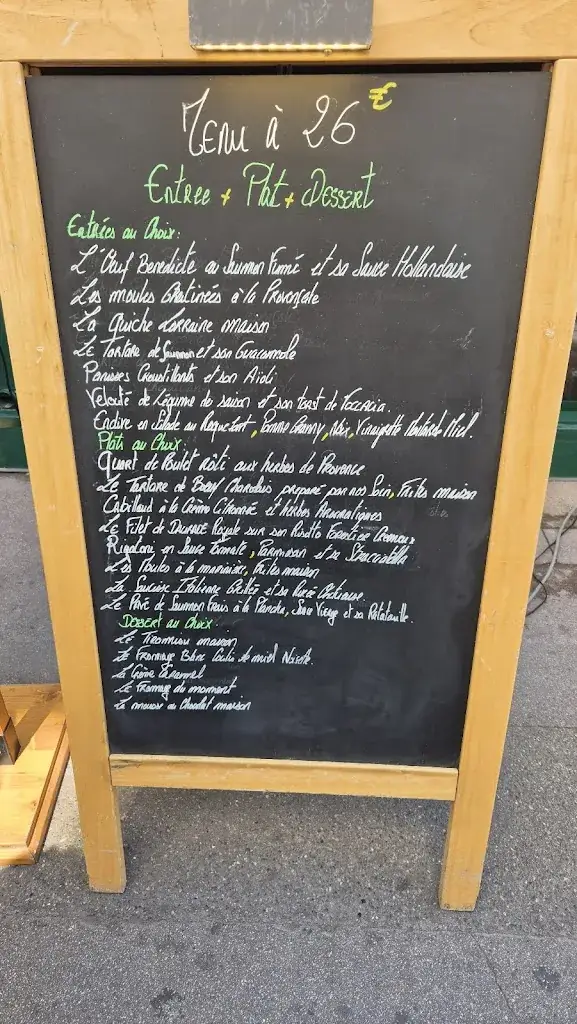 Menu à 26 €
Entree + Plat + Dessert
Entrées au Choix :
L'Oeuf Benedicte au Saumon Fumé et sa Sauce Hollandaise
Les moules Gratinées à la Provençale
La Quiche Lorraine maison
Le Tartare de Saumon et son Guacamole
Panisses Croustillants et son Aïoli
Velouté de Légume de saison et son toast de Focacia.
Endive en Salade au Roquefort, Pomme Granny, Noix, Vinaigrette Moutarde Miel.
Plats au Choix :
Quart de Poulet rôti aux herbes de Provence
Le Tartare de Boeuf Charolais préparé par nos Soin, Frites maison
Cabillaud à la Crème Citronnée et herbes Aromatiques
Le Filet de Daurade Royale sur son Risotto Forestier Cremeux
Rigatoni en Sauce Tomate, Parmesan et sa Stracciatella
Les Moules à la marinière, frites maison
La Saucisse Italienne Grillée et sa Purée
Le Pavé de Saumon à la Plancha, Sauce Vierge et sa Ratatouille.
Dessert au Choix :
Le Tiramisu maison
Le Fromage Blanc Coulis de miel Noisette.
La Crème Caramel
Le Fromage du moment
La mousse au Chocolat maison